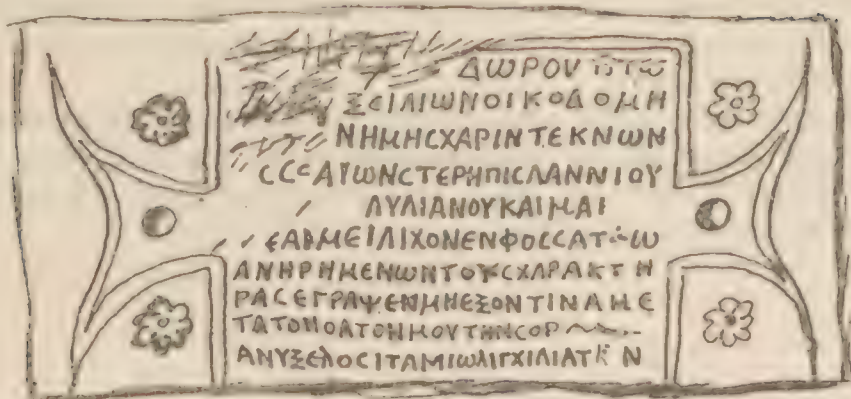 ΔΩΡΟΥ
ΞΕΙΛΙΩΝΟΙΚΟΔΟΜΗ
ΝΗΜΗCΧΑΡΙΝΤΕΚΝΩΝ
CCCΑΥΩΝCΤΕΡΗΠΙCΛΑΝΝΙΟΥ
ΛΥΛΙΑΝΟΥΚΑΙΜΑΙ
ΕΑΡΜΕΙΛΙΧΟΝΕΝΦΟCCΑΤ
ΑΝΗΡΗΜΕΝΩΝΤΟΥCΧΑΡΑΚΤΗ
ΡΑCΕΓΡΑΨΕΝΜΗΕΞΟΝΤΙΝΑΜΕ
ΤΑΤΟΠΟΛΤΟΝΜΟΥΤΗΝCΟΡ
ΑΝΥΞΕΛΟCΙΤΑΜΙΩΛΙΓΧΙΛΙΑΤΚΝ